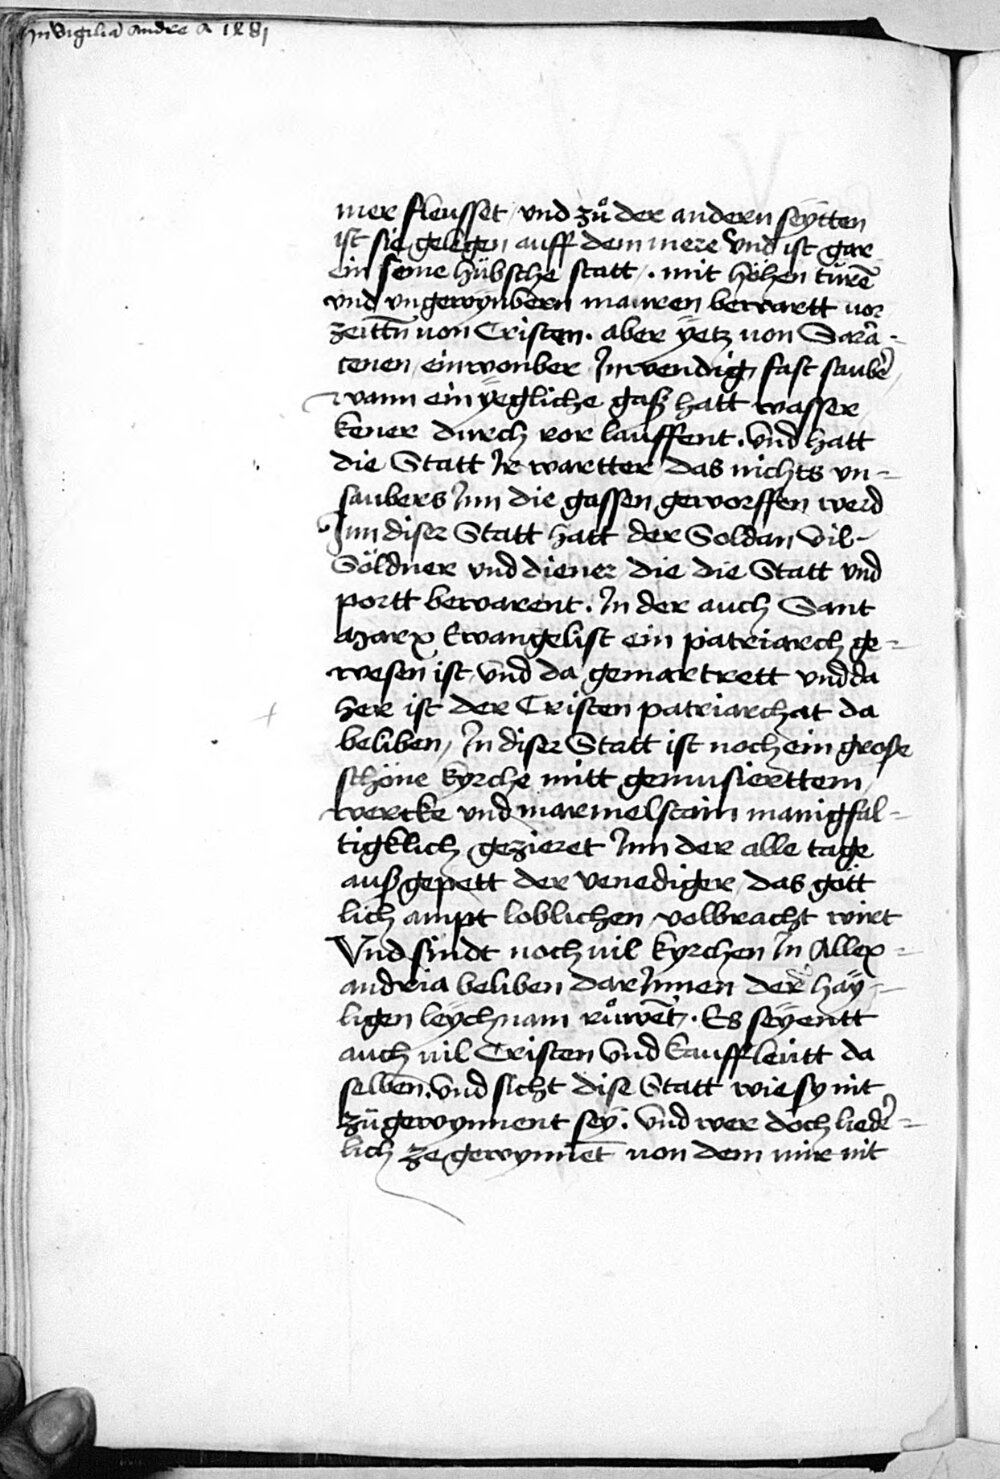 In vigilia Andree A 1481
mer fleusset / vnd zů der andern seÿtten
ist sie gelegen auff dem mere vnd ist gar
ein feine hübsche statt /. mit höhen türē
vnd vngewynbern mauren bewartt vor
zeittn̄ von Cristen. aber ÿetz von Sara-
cenen / einwonber Inwendig fast saubeͬ /
wann ein ÿegliche gaß hatt wasser
kener durch ror lauffent. vnd hatt
die Statt Ir wartter das nichts vn-
saubers Inn die gassen geworffen werd
Inn diser Statt hatt der Soldan vil
Söldner vnd diener die die Statt vnd
portt bewarent. In der auch Sant
Marx Ewangelist ein patriarch ge-
wesen ist / vnd da gemartrett vnd da
her ist der Cristen patriarchat da
beliben / In diser Statt ist noch ein große
schöne kyrche mitt gemusierttem /
wercke vnd marmelstain manigfal-
tigklich gezieret Inn der alle tage
auß gepett der venediger das gött
lich ampt loblichen volbracht wirt
Vnd sindt noch vil kyrchen In Allex-
andria beliben dar Innen der haÿ-
ligen leÿchnam růwēt /. Es seyentt
auch vil Cristen vnd kauffleutt da
selben. vnd sicht dise Statt wie sy nit
zü gewynnent seÿ. vnd wer doch liedeͬ-
lich ze gewynnēt von dem mir nit